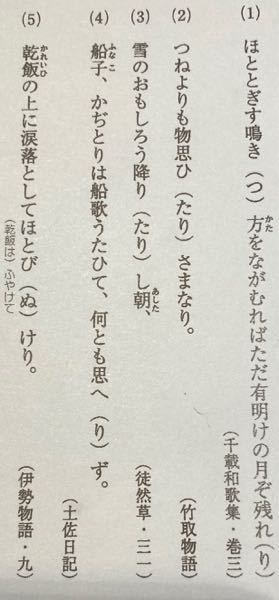 (1) ほととぎす鳴き（つ）方をながむればただ有明けの月ぞ残れ（り）
かた
（千載和歌集・巻三）
(2) つねよりも物思ひ（たり）さまなり。
（竹取物語）
(3) 雪のおもしろう降り（たり）し朝、
あした
（徒然草・三一）
(4) 船子、かぢとりは船歌うたひて、何とも思へ（り）ず。
ふなこ
（土佐日記）
(5) 乾飯の上に涙落としてほとび（ぬ）けり。
かれいひ
（乾飯は）ふやけて
（伊勢物語・九）